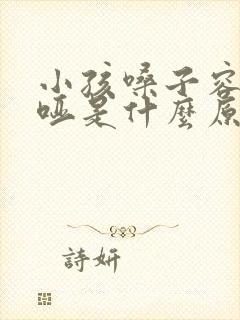 小孩嗓子容
哑是什麼原
詩妍